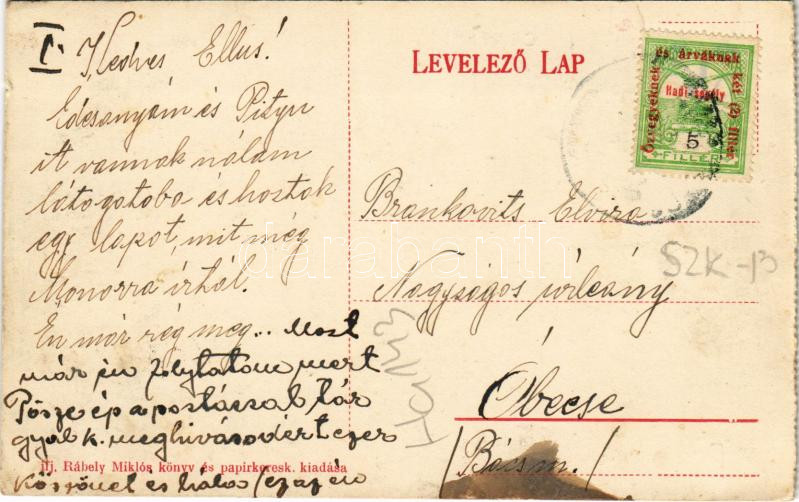 I.
Kedves Ellus!
Édesanyám és Pityu
itt vannak nálam
látogatoba és hoztak
egy lapot, mit még
Monorra írtál.
Én már rég meg... Most
már én folytatom mert
Pösze ép a postással tár
gyal k. meghivásodért ezer
köszönet és hála (ez az én
ifj. Rábely Miklós könyv és papirkeresk. kiadása
LEVELEZŐ LAP
Özvegyeknek és árváknak két (2) fillér
Hadi segély
5
FILLÉR
Brankovits Elvira
Nagyságos úrleány
Óbecse
/Bács m./
SZK-B
darabanth